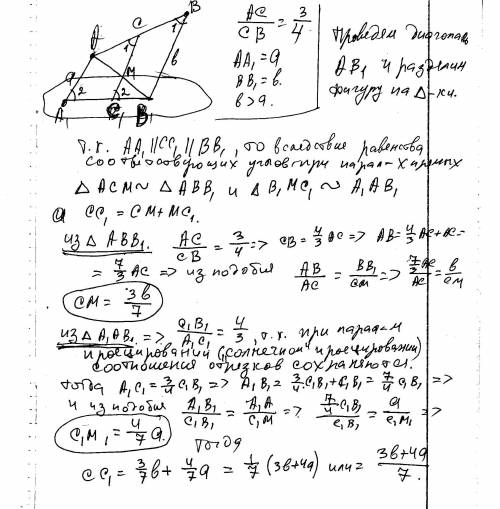 B
C
A
1
1
M
b
a
2
2
A₁
C₁
B₁
AC/CB = 3/4
AA₁ = a
BB₁ = b.
b > a.
Проведем диагональ
AB₁ и разделим
фигуру на Δ-ки.
Т.к. AA₁ || CC₁ || BB₁, то вследствие равенства
соответствующих углов при парал-х прямых
Δ ACM ~ Δ ABB₁ и Δ B₁MC₁ ~ A₁AB₁
CC₁ = CM + MC₁.
из Δ ABB₁. AC/CB = 3/4 => CB = 4/3 AC => AB = 4/3 AC + AC =
= 7/3 AC => из подобия AB/AC = BB₁/CM => 7/3 AC/AC = b/CM
CM = 3b/7
из Δ A₁AB₁ => C₁B₁/A₁C₁ = 4/3, т.к. при парал-м
проецировании ("солнечном" проецировании)
соотношения отрезков сохраняются.
тогда A₁C₁ = 3/4 C₁B₁ => A₁B₁ = 3/4 C₁B₁ + C₁B₁ = 7/4 C₁B₁ =>
и из подобия A₁B₁/C₁B₁ = A₁A/C₁M => 7/4 C₁B₁/C₁B₁ = a/C₁M₁ =>
C₁M₁ = 4/7 a.
тогда
CC₁ = 3/7 b + 4/7 a = 1/7 (3b+4a) или = 3b+4a/7.